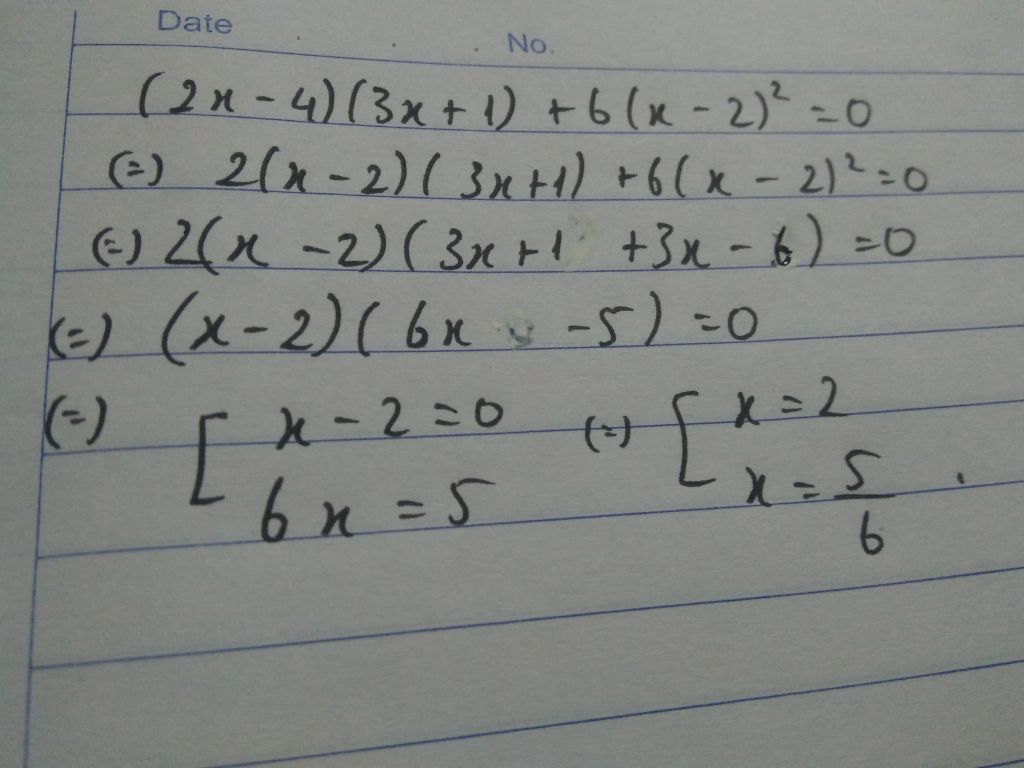 Date No.
(2x - 4)(3x + 1) + 6(x - 2)² = 0
(=) 2(x - 2)(3x + 1) + 6(x - 2)² = 0
(=) 2(x - 2)(3x + 1 + 3x - 6) = 0
(=) (x - 2)(6x - 5) = 0
(=) [ x - 2 = 0 (=) [ x = 2
6x = 5 x = 5/6 .